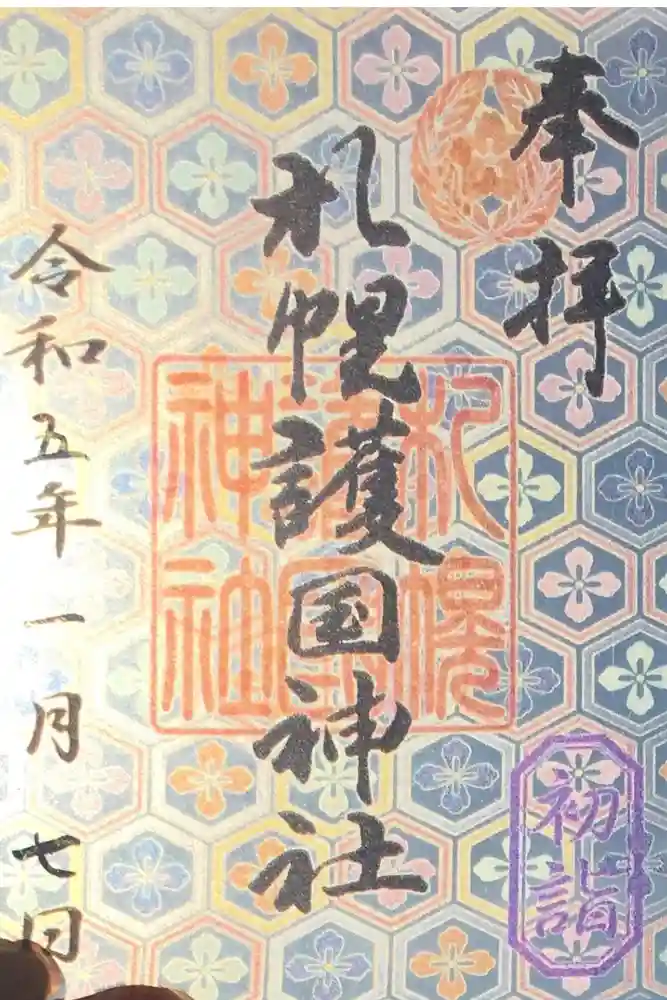 奉拝
札幌護国神社
札幌護国神社
令和五年一月七日
初詣